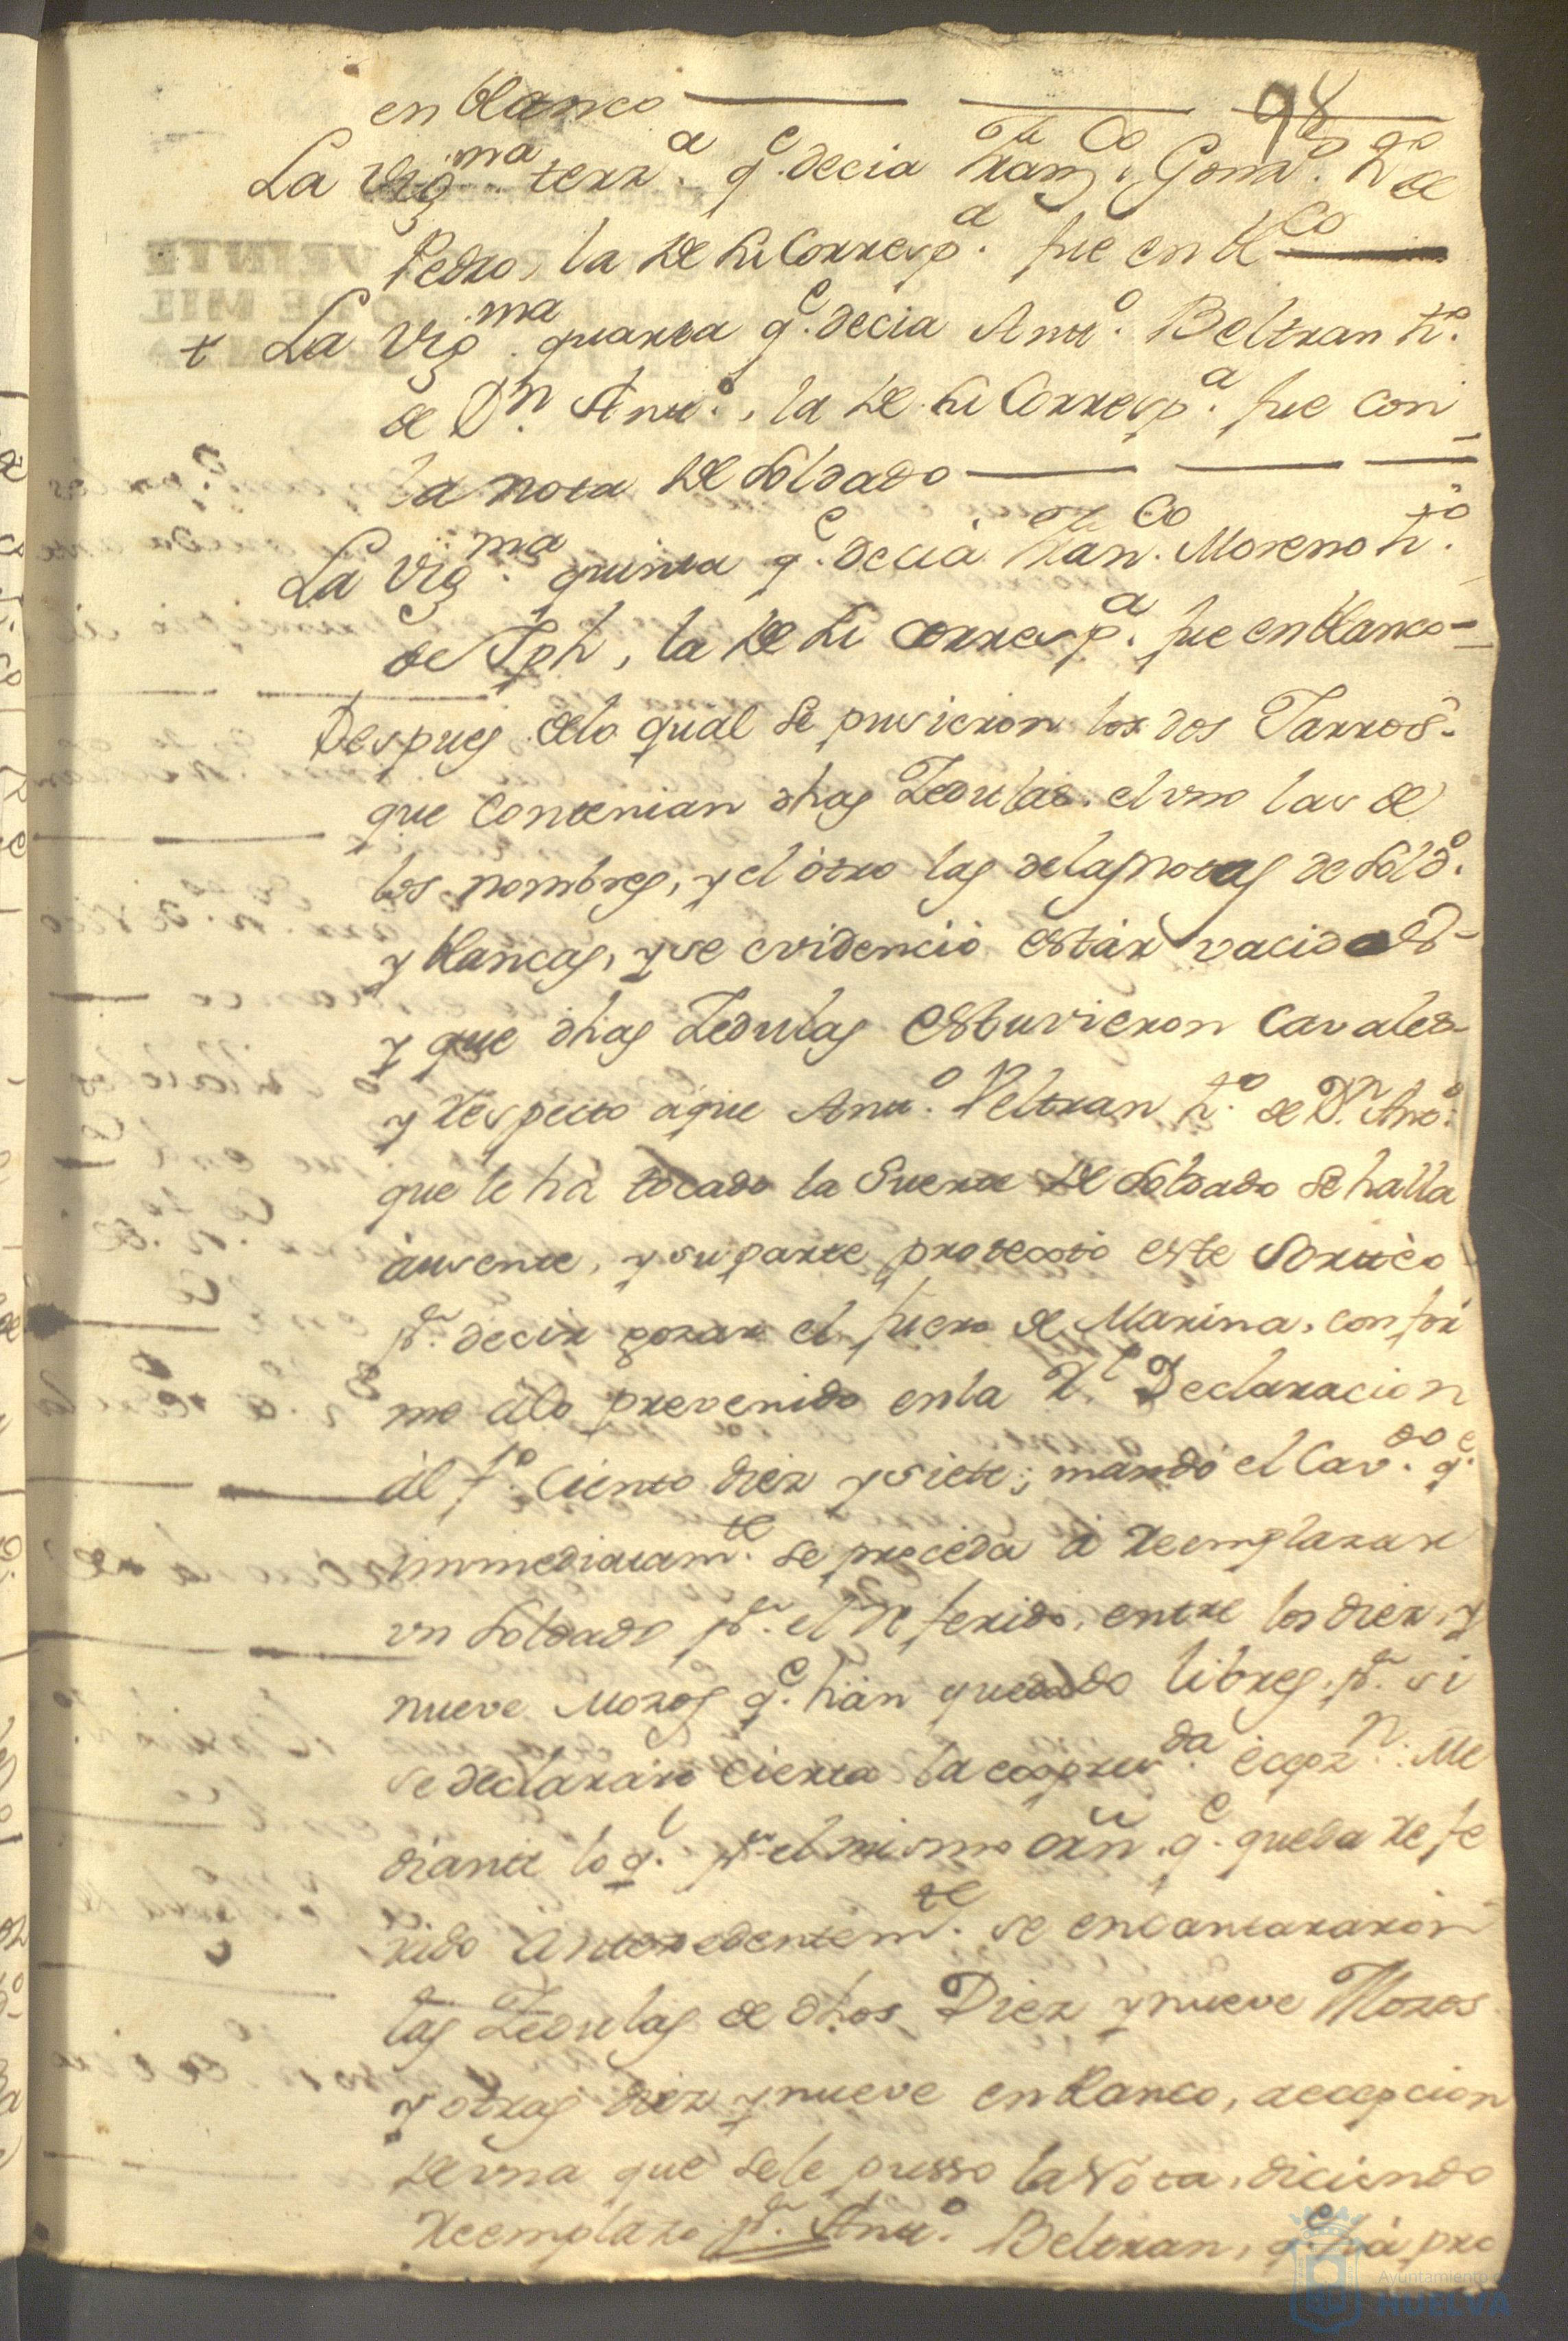 98
en blanco
La vigma terza qe decia Franco Gomz ho de
Pedro, la de su correspa fue en blco
t La vigma quarta qe decia Anto Beltran ho
de Dn Anto, la de su correspa fue con
la nota de soldado
La vigma quinta qe decia Franco Moreno hijo
de Jph, la de su corresspa fue en blanco
Despues delo qual se pusieron los dos Jarros
que contenian dhas Zedulas, el uno las de
los nombres, y el otro las delas notas de soldo
y blancas, y se evidenció estár vacidos
y que dhas Zedulas estuvieron cavales
y respecto aque Anto Veltran hjo de Dn Anto
que le há tocado la Suerte de soldado se halla
ausente, y su parte protextó este Sortéo
pr decir gozar el fuero de Marina, confor
me álo prevenido enla Rl Declaracion
ál fo ciento diez y siete; mandó el Cavdo qe
immediatamte se proceda á reemplazar
un soldado pr el referido, entre los diez y
nueve Mozos qe hán quedado libres, pr si
se declaráre cierta la expresda ecepzn: Me
diante lo ql pr el mismo orñ qe queda refe
rido Antezedentemte se encantararon
las Zedulas de dhos Diez y nueve Mozos
y otras diez y nueve en blanco, aecepcion
de una que sele pusso la Nota, diciendo
Reemplazo pr Anto Beltran, qe há pro
Ayuntamiento de
HUELVA